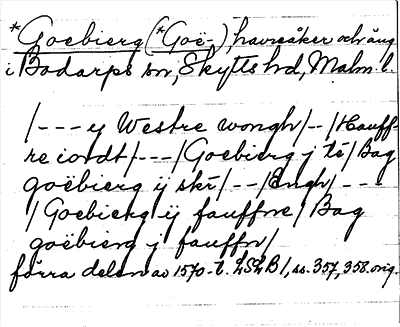 *Goebierg (*Goë-), havreåker och äng
i Bodarps sn, Skytts hd, Malm. l.
/--- ij Westre wongh/--/Hauff-
re iordt/---/Goebierg j té/Bag
goëbierg ij skr/--/Engh/---
/Goebierg ij fauffne/Bag
goëbierg j fauffn/
förra delen av 1570-t. LSLB 1, ss. 357, 358. orig.